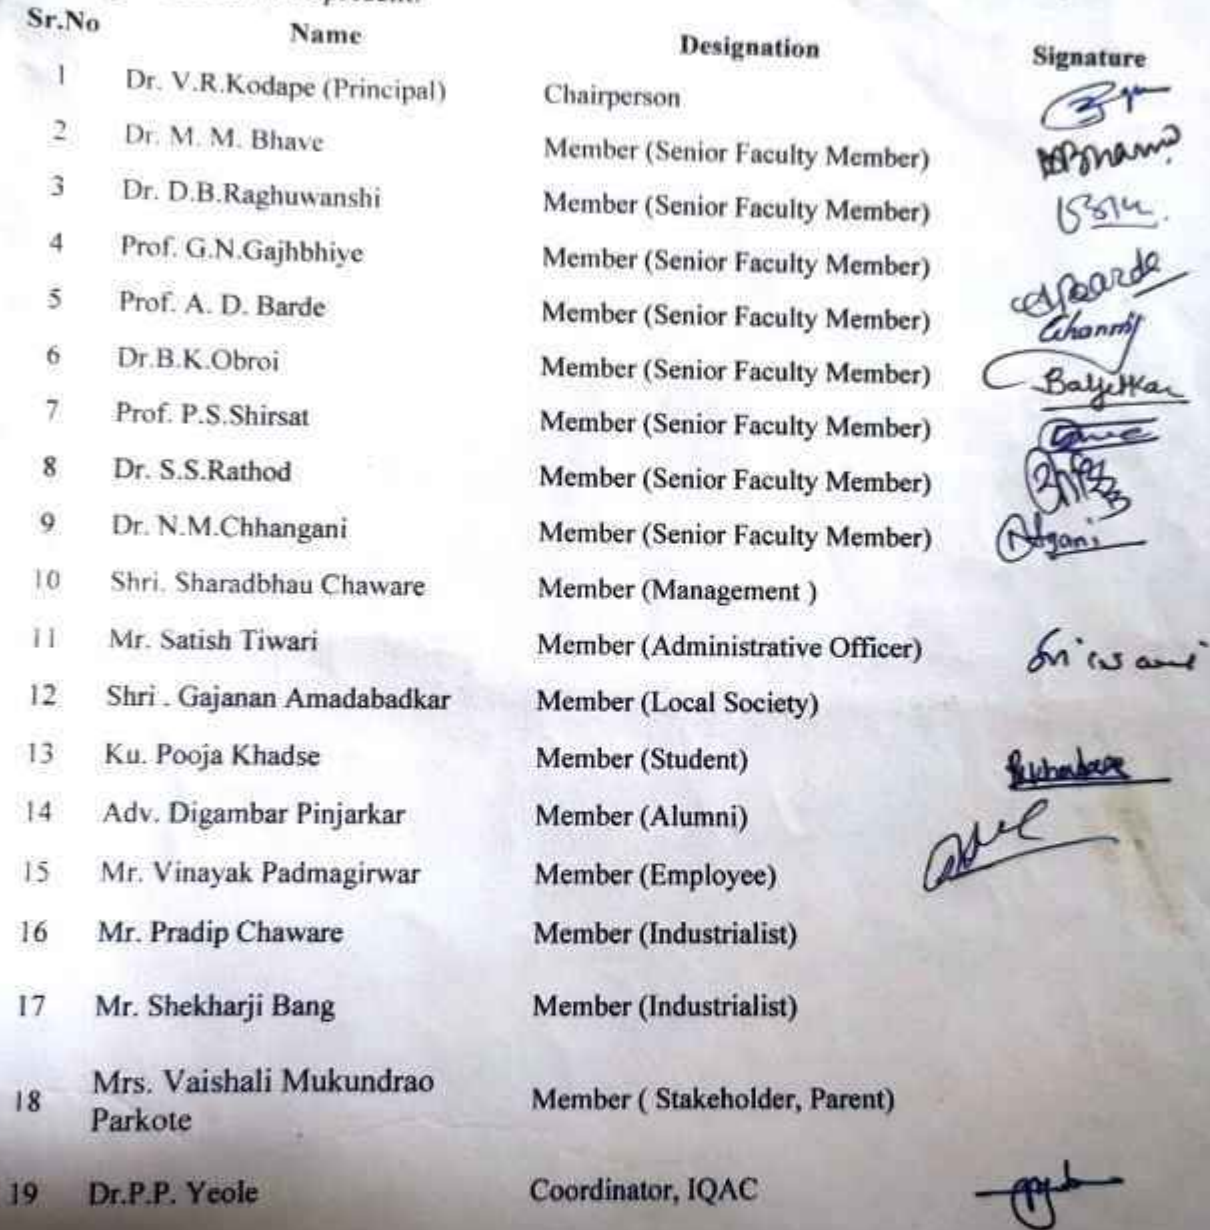 Sr.No Name Designation Signature
1 Dr. V.R.Kodape (Principal) Chairperson
2 Dr. M. M. Bhave Member (Senior Faculty Member)
3 Dr. D.B.Raghuwanshi Member (Senior Faculty Member)
4 Prof. G.N.Gajhbhiye Member (Senior Faculty Member)
5 Prof. A. D. Barde Member (Senior Faculty Member)
6 Dr.B.K.Obroi Member (Senior Faculty Member)
7 Prof. P.S.Shirsat Member (Senior Faculty Member)
8 Dr. S.S.Rathod Member (Senior Faculty Member)
9 Dr. N.M.Chhangani Member (Senior Faculty Member)
10 Shri. Sharadbhau Chaware Member (Management )
11 Mr. Satish Tiwari Member (Administrative Officer)
12 Shri . Gajanan Amadabadkar Member (Local Society)
13 Ku. Pooja Khadse Member (Student)
14 Adv. Digambar Pinjarkar Member (Alumni)
15 Mr. Vinayak Padmagirwar Member (Employee)
16 Mr. Pradip Chaware Member (Industrialist)
17 Mr. Shekharji Bang Member (Industrialist)
18 Mrs. Vaishali Mukundrao Member ( Stakeholder, Parent)
Parkote
19 Dr.P.P. Yeole Coordinator, IQAC